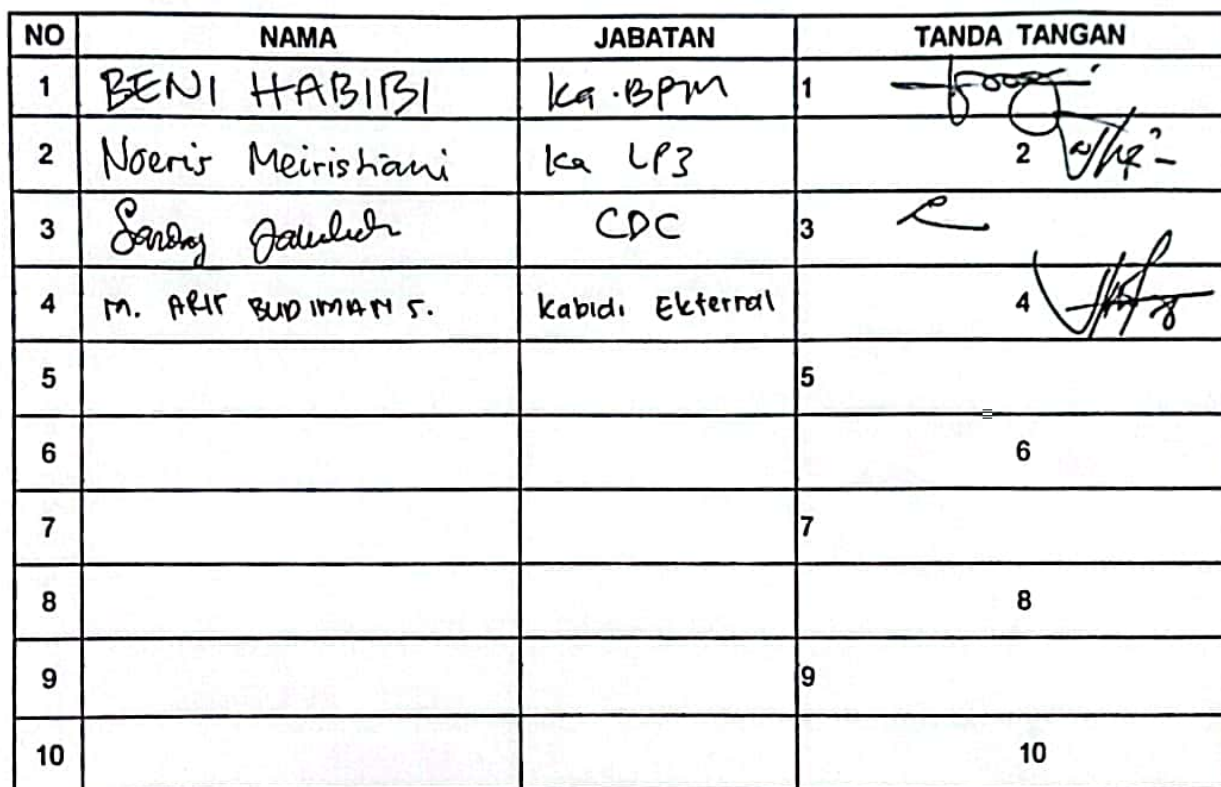 NO NAMA JABATAN TANDA TANGAN
1 BENI HABIBI Ka.BPM 1
2 Noeris Meiristiani Ka LP3 2
3 CDC 3
4 M. ARIF BUDIMAN S. Kabid. Ekternal 4
5 5
6 6
7 7
8 8
9 9
10 10